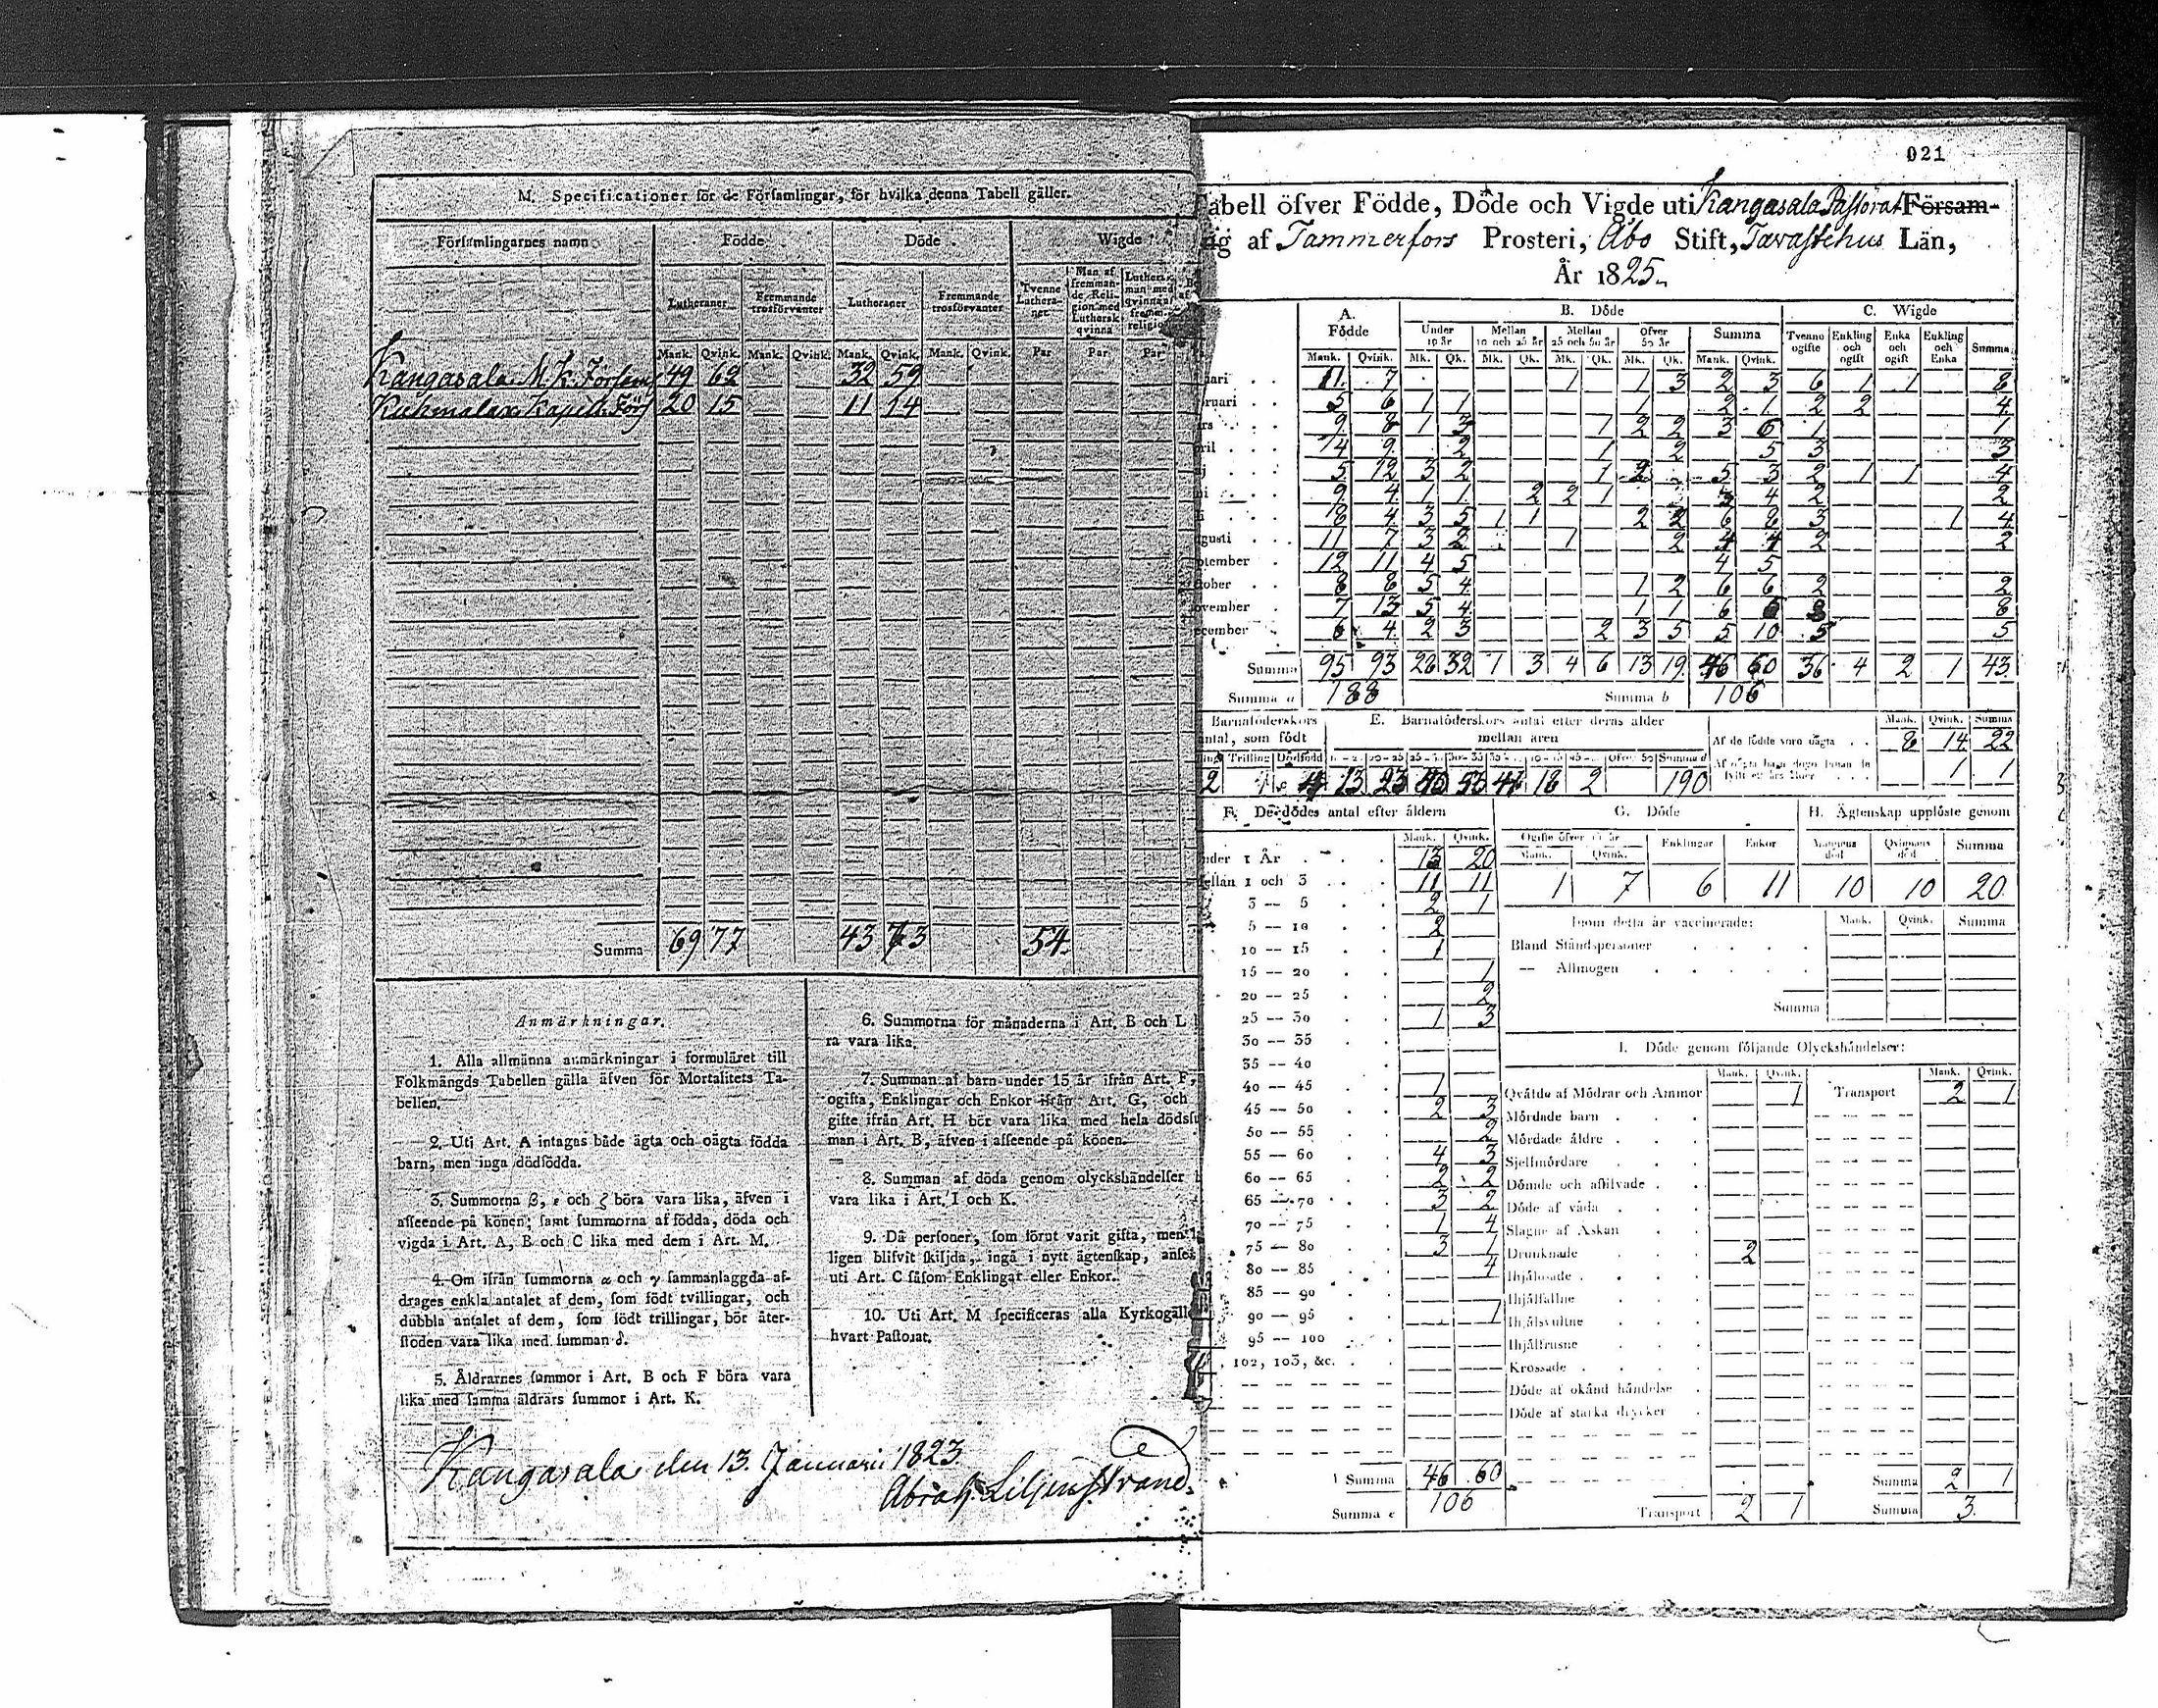 M. Specificationer för de Församlingar, för hvilka denna Tabell gäller.
Församlingarnes namn Födde Döde Wigde
Lutheraner Fremmande trosförvanter Lutheraner Fremmande trosförvanter Tvenne Lutheraner Man af fremmande Religion med Luthersk qvinna
Mank. Qvink. Mank. Qvink. Mank. Qvink. Mank. Qvink. Par Par Par
Kangasala M. K. Förs 49 62 32 59
Kuhmalax Kapell Förs 20 15 11 14
Summa 69 77 43 73 54
Anmärkningar.
1. Alla allmänna anmärkningar i formuläret till
Folkmängds Tabellen gälla äfven för Mortalitets Ta-
bellen.
2. Uti Art. A intagas både ägta och oägta födda
barn, men inga dödfödda.
3. Summorna β, ε och ζ böra vara lika, äfven i
afseende på könen; samt summorna af födda, döda och
vigda i Art. A, B och C lika med dem i Art. M.
4. Om ifrån summorna α och γ sammanlaggda af-
drages enkla antalet af dem, som födt tvillingar, och
dubbla antalet af dem, som födt trillingar, bör åter-
stoden vara lika med summan δ.
5. Åldrarnes summor i Art. B och F böra vara
lika med samma åldrars summor i Art. K.
6. Summorna för månaderna i Art. B och L
ra vara lika.
7. Summan af barn under 15 år ifrån Art. F,
ogifta, Enklingar och Enkor ifrån Art. G, och
gifte ifrån Art. H bör vara lika med hela döds
man i Art. B, äfven i afseende på könen.
8. Summan af döda genom olyckshändelser
vara lika i Art. I och K.
9. Då personer, som förut varit gifta, men
ligen blifvit skiljda, ingå i nytt ägtenskap, anses
uti Art. C såsom Enklingar eller Enkor.
10. Uti Art. M specificeras alla Kyrkogäll
hvart Pastorat.
Kangasala den 13. Januarii 1823.
Abrah. Liljenstrand.
021
Tabell öfver Födde, Döde och Vigde uti Kangasala Pastorat Försam-
af Tammerfors Prosteri, Åbo Stift, Tavastehus Län,
År 1825.
A. Födde B. Döde C. Wigde
Under 10 år Mellan 10 och 25 år Mellan 25 och 50 år Öfver 50 år Summa Tvenne ogifte Enkling och ogift Enka och ogift Enkling och Enka Summa
Mank. Qvink. Mk. Qk. Mk. Qk. Mk. Qk. Mk. Qk. Mank. Qvink.
uari 11 7 1 1 3 2 3 6 1 1 8
bruari 5 6 1 1 1 2 1 2 2 4
rs 9 8 1 3 1 2 2 3 6 1 1
pril 14 9 2 1 2 5 3 3
j 5 12 3 2 1 2 5 3 2 1 1 4
ni 9 4 1 1 2 2 1 3 4 2 2
li 8 4 3 5 1 1 2 2 6 8 3 1 4
gusti 11 7 3 2 1 2 4 4 2 2
ptember 12 11 4 5 4 5
ktober 8 8 5 4 1 2 6 6 2 2
ovember 7 13 5 4 1 1 6 8
ecember 4 2 3 2 3 5 5 10 5 5
Summa 95 93 26 32 1 3 4 6 13 19 46 60 36 4 2 1 43
Summa a 188 Summa b 106
Barnaföderskors antal, som födt E. Barnaföderskors antal efter deras ålder mellan åren Mank. Qvink. Summa
Af de födde voro oägta 8 14 22
Trilling Dödfödd Öfver 50 Summa d 1 1
2 13 23 18 2 190
F. De dödes antal efter åldern G. Döde H. Ägtenskap upplöste genom
Mank. Qvink. Ogifte öfver 15 år Enklingar Enkor Mannens död Qvinnans död Summa
nder 1 År 13 20 Mank. Qvink.
ellan 1 och 3 11 11 1 7 6 11 10 10 20
3 — 5 2 1
5 — 10 2 Inom detta år vaccinerade: Mank. Qvink. Summa
10 — 15 1 Bland Ståndspersoner
15 — 20 1 — Allmogen
20 — 25 2 Summa
25 — 30 1 3
30 — 35 I. Döde genom följande Olyckshändelser:
35 — 40 Mank. Qvink. Mank. Qvink.
40 — 45 1 Qväfde af Mödrar och Ammor 1 Transport 2 1
45 — 50 2 3 Mördade barn
50 — 55 2 Mördade äldre
55 — 60 4 3 Sjelfmördare
60 — 65 2 2 Dömde och aflifvade
65 — 70 3 2 Döde af våda
70 — 75 1 4 Slagne af Åskan
75 — 80 3 1 Drunknade 2
80 — 85 4
85 — 90 Ihjälfallne
90 — 95 1 Ihjälsvultne
95 — 100 Ihjälfrusne
102, 103, &c. Krossade
Döde af okänd händelse
Döde af starka drycker
Summa 46 60 Summa 2 1
Summa e 106 Transport 2 1 Summa 3